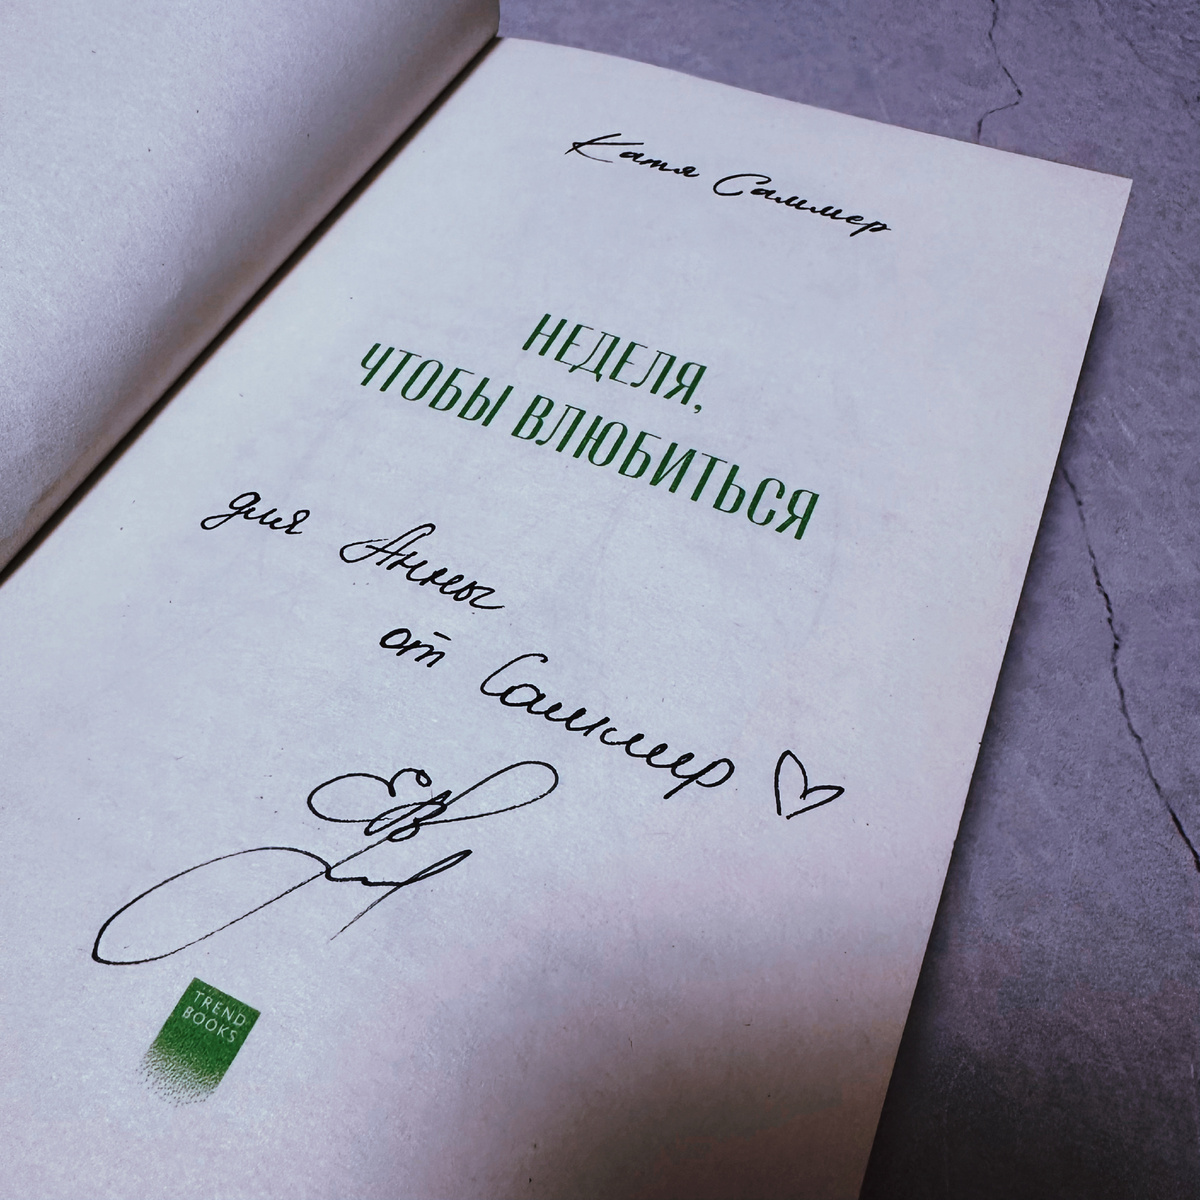 Катя Саммер
НЕДЕЛЯ,
ЧТОБЫ ВЛЮБИТЬСЯ
для Анны
от Саммер
TREND
BOOKS